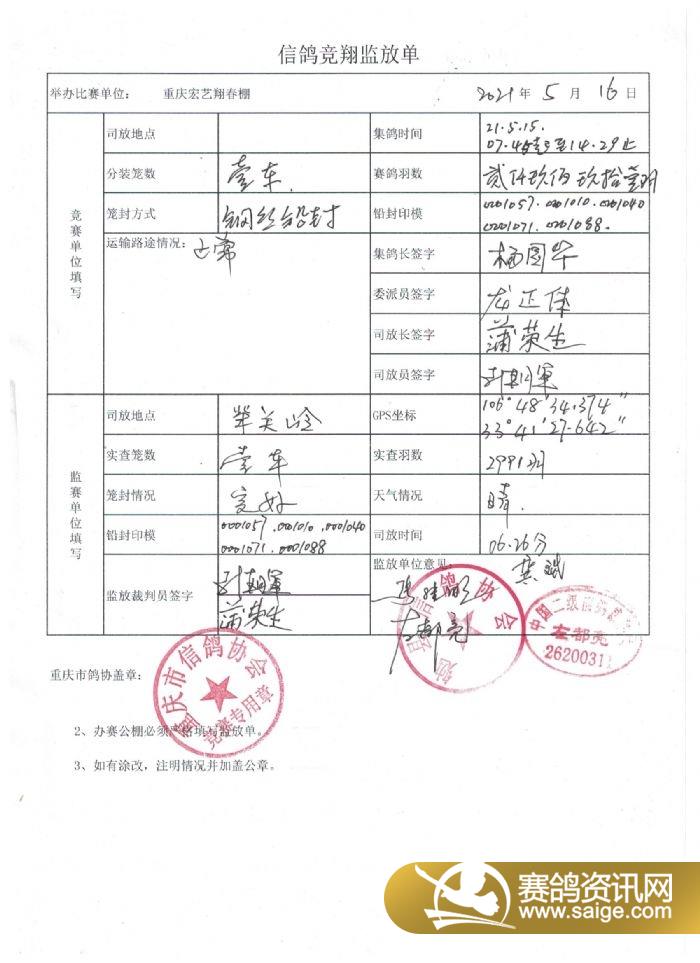 信鸽竞翔监放单
举办比赛单位: 重庆宏艺翔春棚 2021 年 5 月 16 日
竞赛单位填写
司放地点 集鸽时间 21.5.15.
分装笼数 壹车. 赛鸽羽数 贰仟玖佰玖拾壹羽
笼封方式 钢丝铅封 铅封印模 0001057. 0001010. 0001040
0001071. 0001088.
运输路途情况: 正常 集鸽长签字 杨国华
委派员签字 龙正体
司放长签字 蒲荣生
司放员签字
监赛单位填写
司放地点 牟关岭 GPS坐标 106°48'34.374"
33°41'27.642"
实查笼数 壹车 实查羽数 2991羽
笼封情况 完好 天气情况 晴.
铅封印模 0001057, 0001010, 0001040
0001071. 0001088 司放时间 06.26分
监放裁判员签字 蒲荣生 监放单位意见:
左都亮
鸽协会
中国二级
左都亮
2620031
重庆市鸽协盖章:
重庆市信鸽协会
竞赛专用章
2、办赛公棚必须严格填写监放单。
3、如有涂改，注明情况并加盖公章。
赛鸽资讯网
www.saige.com